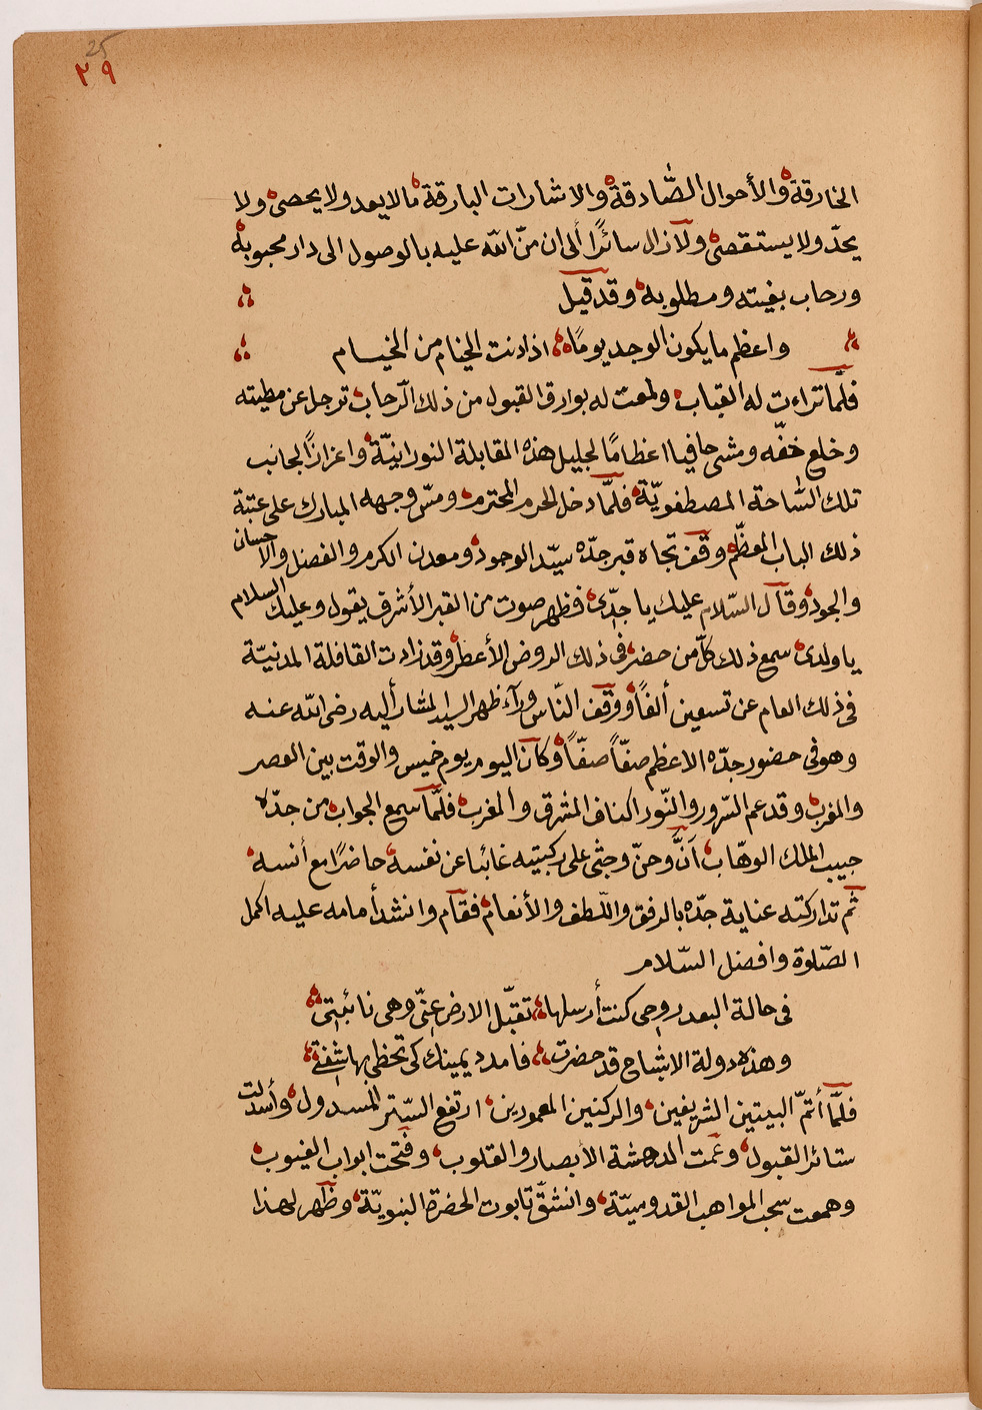 25
٢٩
الخارقة والأحوال الصّادقة والاشارات البارقة مالايعد ولا يحصى ولا
يحدّ ولا يستقصى ولازال سائرًا الى ان منّ الله عليه بالوصول الى دار محبوبه
ورحاب بغيته ومطلوبه وقد قيل
واعظم مايكون الوجد يومًا اذا دنت الخيام من الخيام
فلمّا تراءت له القباب ولمعت له بوارق القبول من ذلك الرّحاب ترجل عن مطيته
وخلع خفّه ومشى حافيا اعظامًا لجليل هذه المقابلة النورانيّة واعزازًا لجانب
تلك السّاحة المصطفويّة فلمّا دخل الحرم المحترم ومسّ وجهه المبارك على عتبة
ذلك الباب المعظّم وقف تجاه قبر جدّه سيّد الوجود ومعدن الكرم والفضل والاحسان
والجود وقال السّلام عليك يا جدّى فظهر صوت من القبر الأشرق يقول وعليك السلام
يا ولدى سمع ذلك كلّ من حضر فى ذلك الروض الأعطر وقد زادت القافلة المدنيّة
فى ذلك العام عن تسعين ألفاً ووقف النّاس ورآء ظهر السيد المشار أليه رضى الله عنه
وهو فى حضور جدّه الاعظم صفّاً صفّاً وكان اليوم يوم خميس والوقت بين العصر
والمغرب وقد عم السّرور والنّور اكناف المشرق والمغرب فلمّا سمع الجواب من جدّه
حبيب الملك الوهّاب أنّ وحنّ وجثى على ركبتيه غائبا عن نفسه حاضرًا مع أنسه
ثم تداركته عناية جدّه بالرفق واللّطف والأنعام فقام وانشد أمامه عليه اكمل
الصّلوة وافضل السّلام
فى حالة البعد روحى كنت أرسلها تقبّل الارض عنّى وهى نائبتى
وهذه دولة الاشباح قد حضرت فامدد يمينك كى تحظى بها شفتى
فلمّا أتمّ البيتين الشريفين والركنين المعمورين ارتفع السّتر المسدول وأسدلت
ستائر القبول وعمت الدهشة الأبصار والقلوب وفتحت ابواب الغيوب
وهمعت سحب المواهب القدوسيّة وانشقّ تابوت الحضرة النبويّة وظهر لهذا